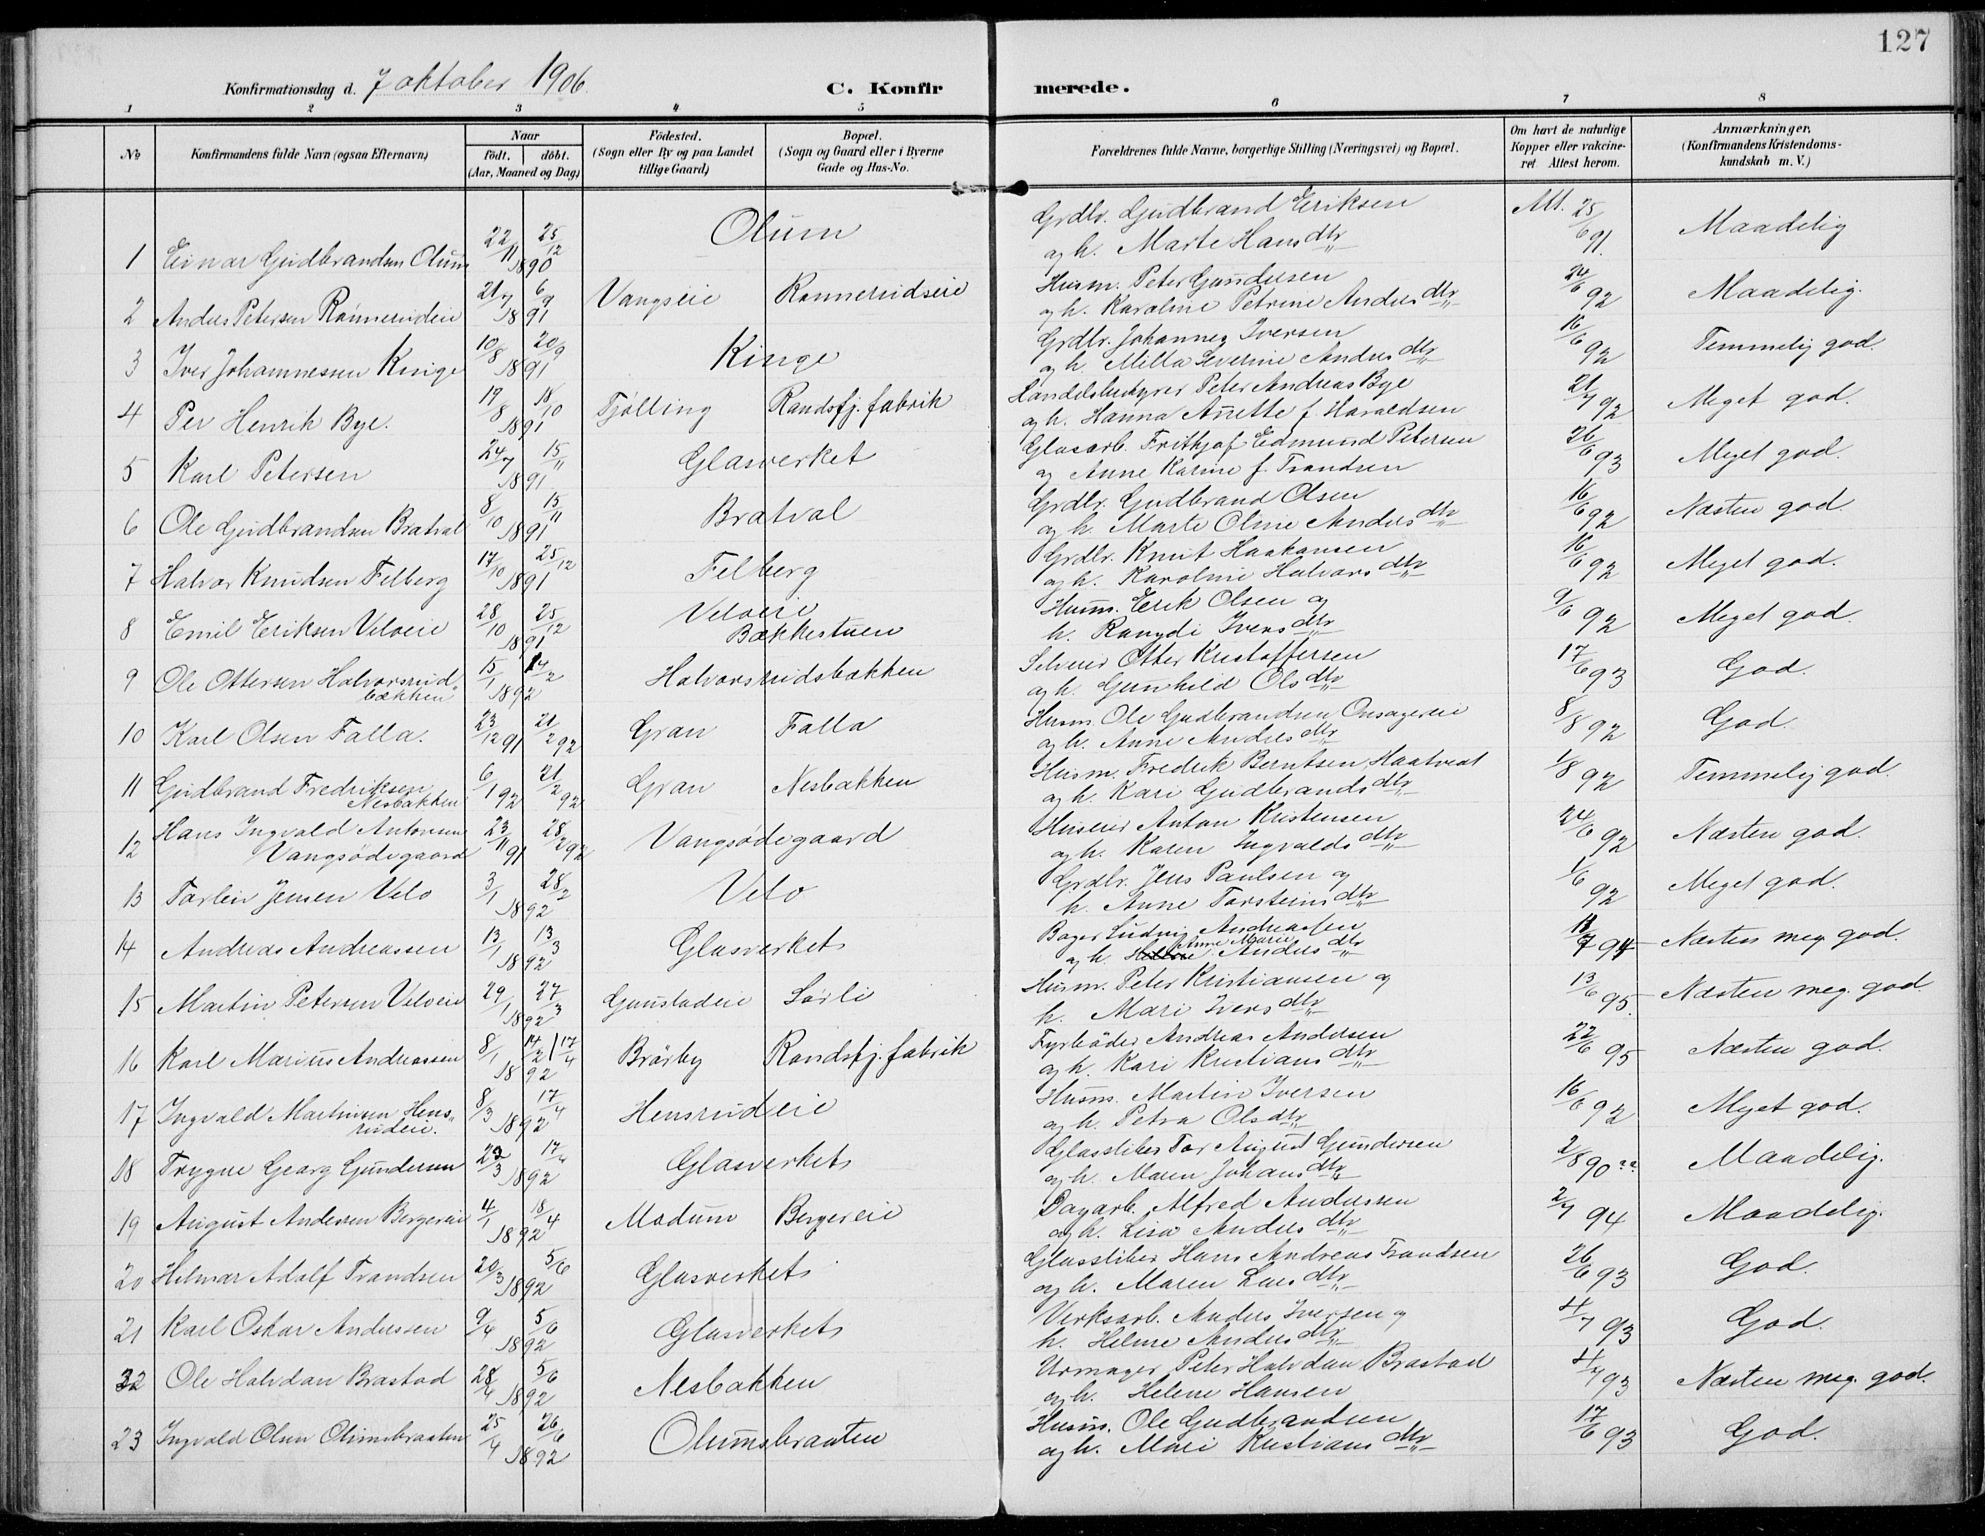 127
Konfirmationsdag d. 7 oktober 1906. C. Konfirmerede.
1 2 3 4 5 6 7 8
No Konfirmandens fulde Navn (ogsaa Efternavn) Naar født, døbt. (Aar, Maaned og Dag) Fødested. (Sogn eller By og paa Landet tillige Gaard) Bopæl. (Sogn og Gaard eller i Byerne Gade og Hus-No. Forældrenes fulde Navne, borgerlige Stilling (Næringsvei) og Bopæl. Om havt de naturlige Kopper eller vakcineret. Attest herom. Anmærkninger. (Konfirmandens Kristendomskundskab m. V.)
1 Einar Gudbrandsen Olum 22/11 25/12 1890 Olum Grdbr. Gudbrand Eriksen Att. 25/6 91. Maadelig
og h. Marte Hansdtr
2 Anders Petersen Rønnerudeie 21/7 6/9 1891 Vangseie Rønnerudseie Husm. Peter Gundersen 24/6 92 Maadelig.
og h. Karoline Petrine Andersdtr
3 Iver Johannessen Kinge 10/8 20/9 1891 Kinge Grdbr. Johannes Iversen 16/6 92 Temmelig god.
og h. Milla Severine Andersdtr
4 Per Henrik Bye. 19/8 18/10 1891 Tjølling Randsfj. fabrik Handelsbestyrer Peter Andreas Bye 21/7 92 Meget god.
og h. Hanna Anette f. Haraldsen
5 Karl Petersen 24/7 15/11 1891 Glasverket Glasarb. Frithjof Edmund Petersen 26/6 93 Meget god.
og Anne Karine f. Trandsen
6 Ole Gudbrandsen Bratval 8/10 15/11 1891 Bratval Grdbr. Gudbrand Olsen 16/6 92 Næsten god
og h. Marte Oline Andersdtr
7 Halvor Knudsen Felberg 17/10 25/12 1891 Felberg Grdbr. Knut Haakonsen 16/6 92 Meget god.
og h. Karoline Halvorsdtr
8 Emil Eriksen Veloeie 28/10 25/12 1891 Veloeie Bækkestuen Husm. Erik Olsen og 9/6 92 Meget god.
h. Rangdi Iversdtr
9 Ole Ottersen Halvorsrudbækken 15/1 14/2 1892 Halvorsrudsbakken Selveier Otter Kristoffersen 17/6 93 God.
og h. Gunhild Olsdtr
10 Karl Olsen Falla. 23/12 91 21/2 92 Gran Falla Husm. Ole Gudbrandsen Onsagereie 8/8 92 God.
og h. Anne Andersdtr
11 Gudbrand Fredriksen Nesbakken 6/1 92 21/2 92 Gran Nesbakken Husm. Fredrik Berntsen Haatveat 1/8 92 Temmelig god.
og h. Kari Gudbrandsdtr
12 Hans Ingvald Antonsen Vangsødegaard 23/11 91 28/2 92 Vangsødegaard Huseier Anton Kristensen 24/6 92 Næsten god.
og h. Karen Ingvaldsdtr
13 Torlein Jensen Velo 3/1 28/2 1892 Velo Grdbr. Jens Paulsen og 1/6 92 Meget god.
h. Anne Torsteinsdtr
14 Andreas Andreassen 13/1 13/3 1892 Glasverket Bager Ludvig Andreasen 18/7 94 Næsten meg. god.
og h. Anne Marie Andersdtr
15 Martin Petersen Veloeie 29/1 27/3 1892 Gunstadeie Sørli Husm. Peter Kristiansen og 13/6 95. Næsten meg. god
h. Mari Iversdtr
16 Karl Marius Andreassen 8/1 14/2 | 17/4 1892 Brørby Randsfj. fabrik Fyrbøder Andreas Andersen 22/6 95 Næsten god.
og h. Kari Kristiansdtr
17 Ingvald Martinsen Hensrudeie. 8/3 17/4 1892 Hensrudeie Husm. Martin Iversen 16/6 92 Meget god.
og h. Petra Olsdtr
18 Trygve Georg Gundersen 22/3 17/4 1892 Glasverket Glassliber Tor August Gundersen 2/8 90 ?? Maadelig.
og h. Maren Johansdtr
19 August Andersen Bergereie 4/1 18/4 1892 Modum Bergereie Dagarb. Alfred Anderssen 2/7 94 Maadelig.
og h. Lisa Andersdtr
20 Helmar Adolf Trandsen 20/3 5/6 1892 Glasverket Glassliber Hans Andreas Trandsen 26/6 93 God.
og h. Maren Larsdtr
21 Karl Oskar Anderssen 9/4 5/6 1892 Glasverket Verksarb. Anders Iversen og 4/7 93 God.
h. Helene Andersdtr
22 Ole Halvdan Brastad 28/4 5/6 1892 Nesbakken Urmager Peter Halvdan Brastad 4/7 93 Næsten meg. god.
og h. Helene Hansen
23 Ingvald Olsen Olumsbraaten 25/4 26/6 1892 Olumsbraaten Husm. Ole Gudbrandsen 17/6 93 God.
og h. Mari Kristiansdtr